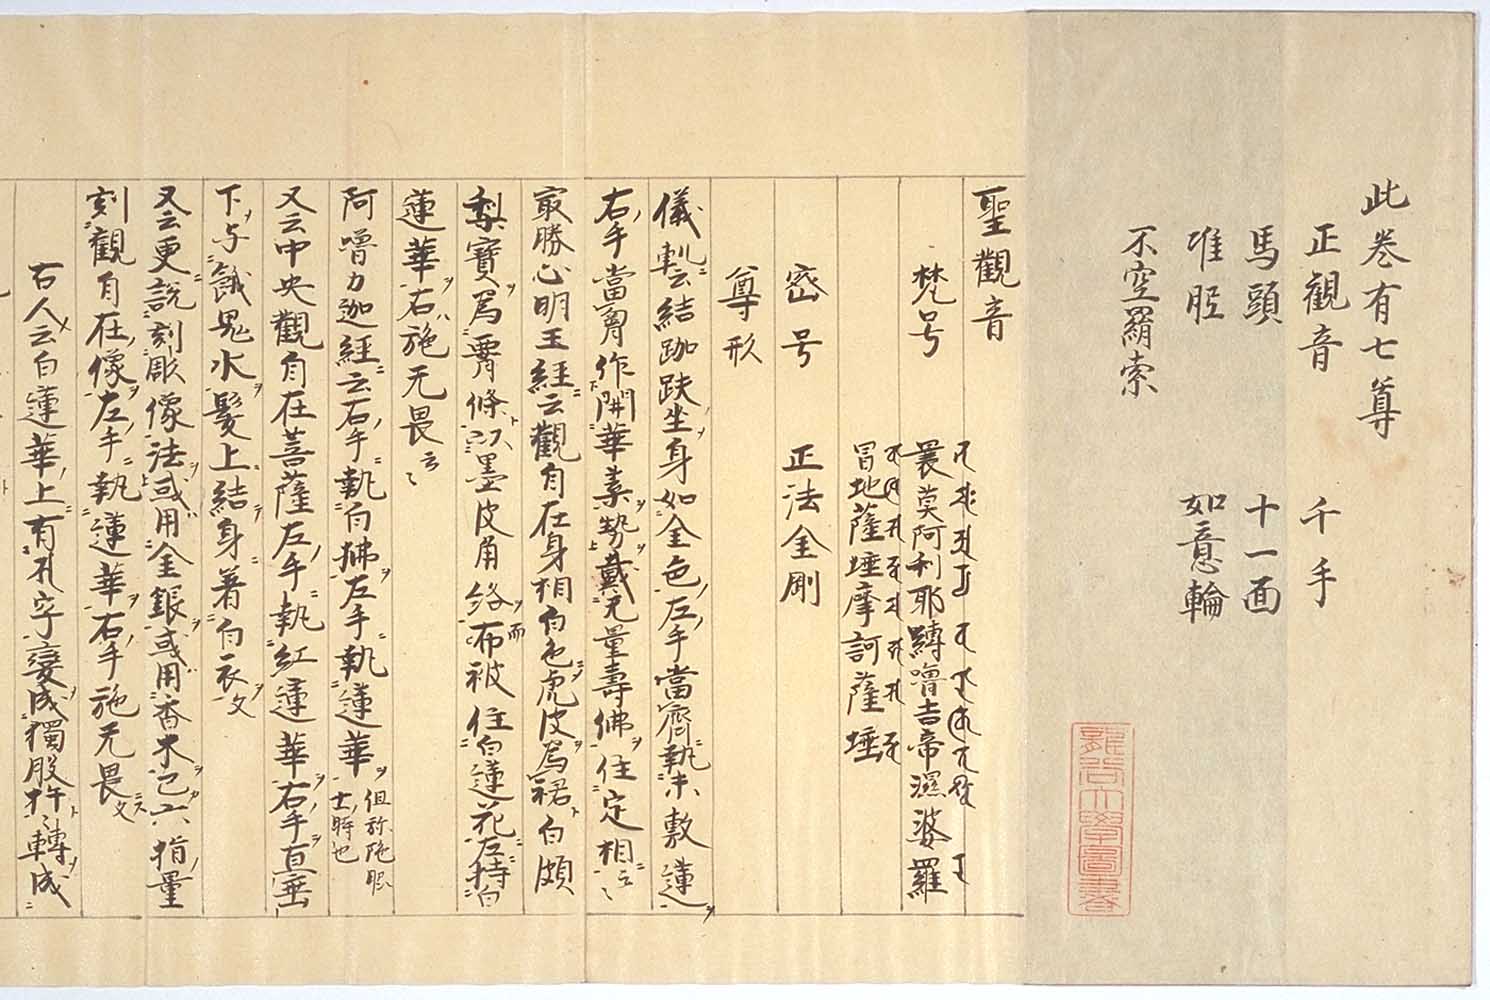 此巻有七尊
正観音 千手
馬頭 十一面
准胝 如意輪
不空羂索
龍谷大學圖書
聖觀音
梵号 曩莫阿利耶嚩嚕吉帝濕婆羅
冒地薩埵摩訶薩埵
密号 正法金剛
尊形
儀軌云結跏趺坐身如金色左手當齊執未敷蓮
右手當胸作開華葉勢戴无量壽佛住定相云〻
最勝心明王經云觀自在身相白色虎皮爲裙白頗
梨寶爲臂條以墨皮角絡而布被住白蓮花左持白
蓮華右施无畏云〻
阿嚕力迦經云右手執白拂左手執蓮華
又云中央觀自在菩薩左手執紅蓮華右手直垂
下与餓鬼水髪上結身著白衣文
又云更説刻彫像法或用金銀或用香木已六指量
刻觀自在像左手執蓮華右手施无畏文
石人云白蓮華上有孔字變成獨股杵轉成